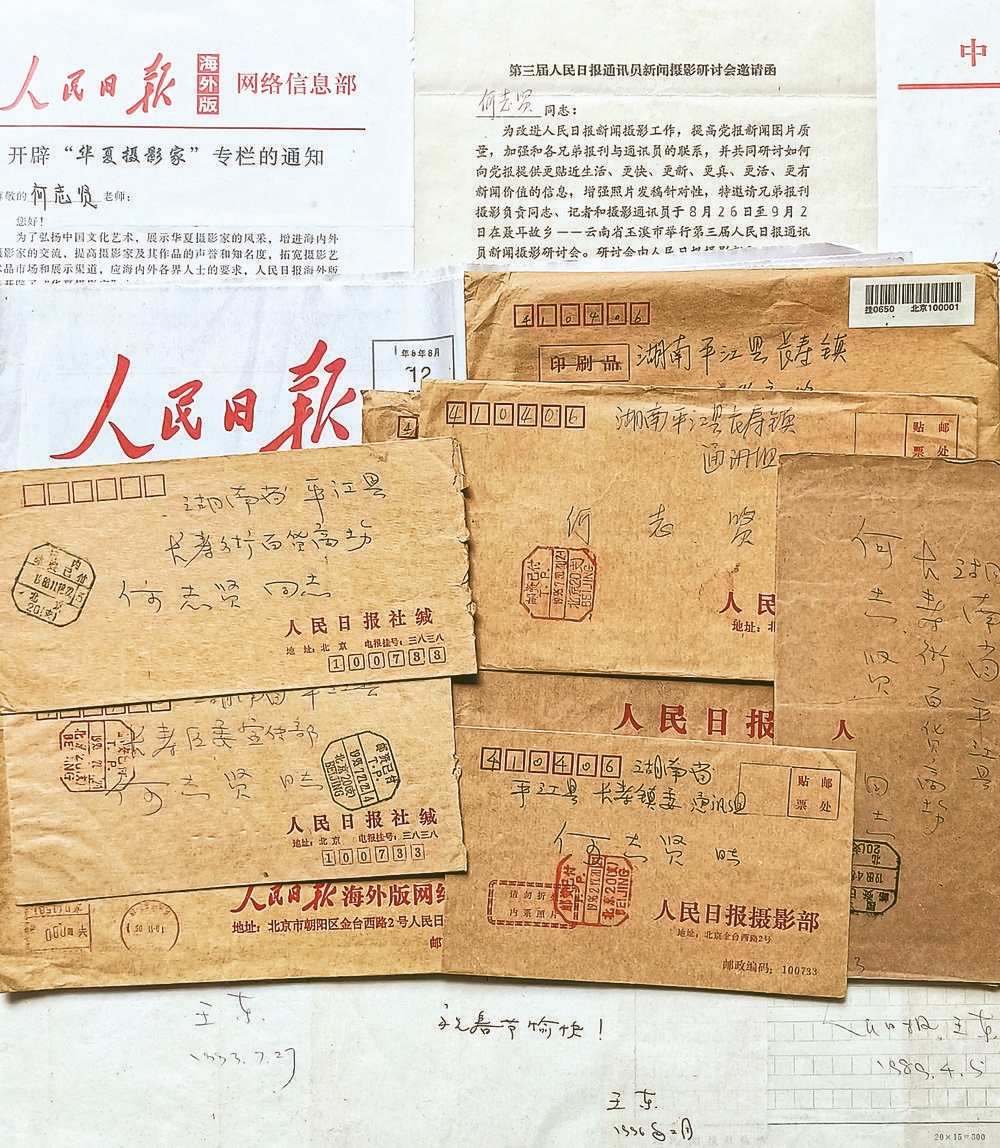 人民日报 海外版 网络信息部
开辟“华夏摄影家”专栏的通知
尊敬的何志贤老师:
您好!
为了弘扬中国文化艺术，展示华夏摄影家的风采，增进海内外
摄影家的交流，提高摄影家及其作品的声誉和知名度，拓宽摄影艺
术品市场和展示渠道，应海内外各界人士的要求，人民日报海外版
第三届人民日报通讯员新闻摄影研讨会邀请函
何志贤 同志:
为改进人民日报新闻摄影工作，提高党报新闻图片质
量，加强和各兄弟报刊与通讯员的联系，并共同研讨如何
向党报提供更贴近生活、更快、更新、更真、更活、更有
新闻价值的信息，增强照片发稿针对性，特邀请兄弟报刊
摄影负责同志、记者和摄影通讯员于8月26日至9月2
日在聂耳故乡——云南省玉溪市举行第三届人民日报通讯
员新闻摄影研讨会。研讨会由人民日报摄影部
中
人民日报
年8月8月
12
410406
挂0650 北京100001
印刷品
湖南平江县长寿镇
410406
湖南平江县长寿镇
通讯组
贴邮
票处
何志贤
人民日
地址:
湖南省平江县
长寿街百货商场
何志贤同志
人民日报社缄
地址:北京 电报挂号:三八三八
100733
长寿区委宣传部
何志贤 收
人民日报社缄
地址:北京 电报挂号:三八三八
100733
人民日报海外版网络
地址:北京市朝阳区金台西路2号人民日
邮
人民日报
410406
湖南省
平江县长寿镇委通讯组
贴邮
票处
何志贤 收
请勿折
内票照片
人民日报摄影部
地址:北京金台西路2号
邮政编码:100733
湖南省平江县
长寿街百货商场
何志贤同志
人
王东
1993.7.27
祝春节愉快!
王东
人民日报 王东
1989.4.5
20×15=300